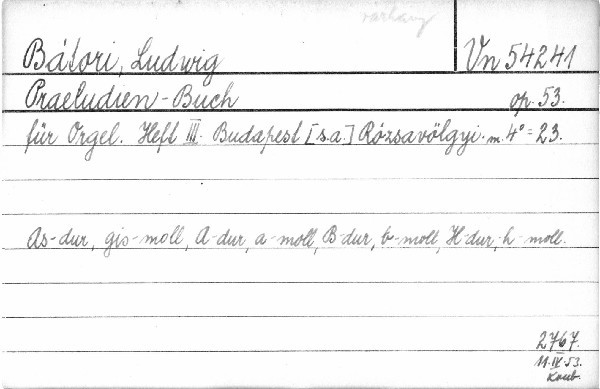 várhany
Bátori, Ludwig Vn 54241
Praeludien-Buch op. 53.
für Orgel. Heft III. Budapest [s.a.] Rózsavölgyi. m. 4° = 23.
As-dur, gis-moll, A-dur, a-moll, B-dur, b-moll, H-dur, h-moll.
2767.
11.IV.53.
Kout.